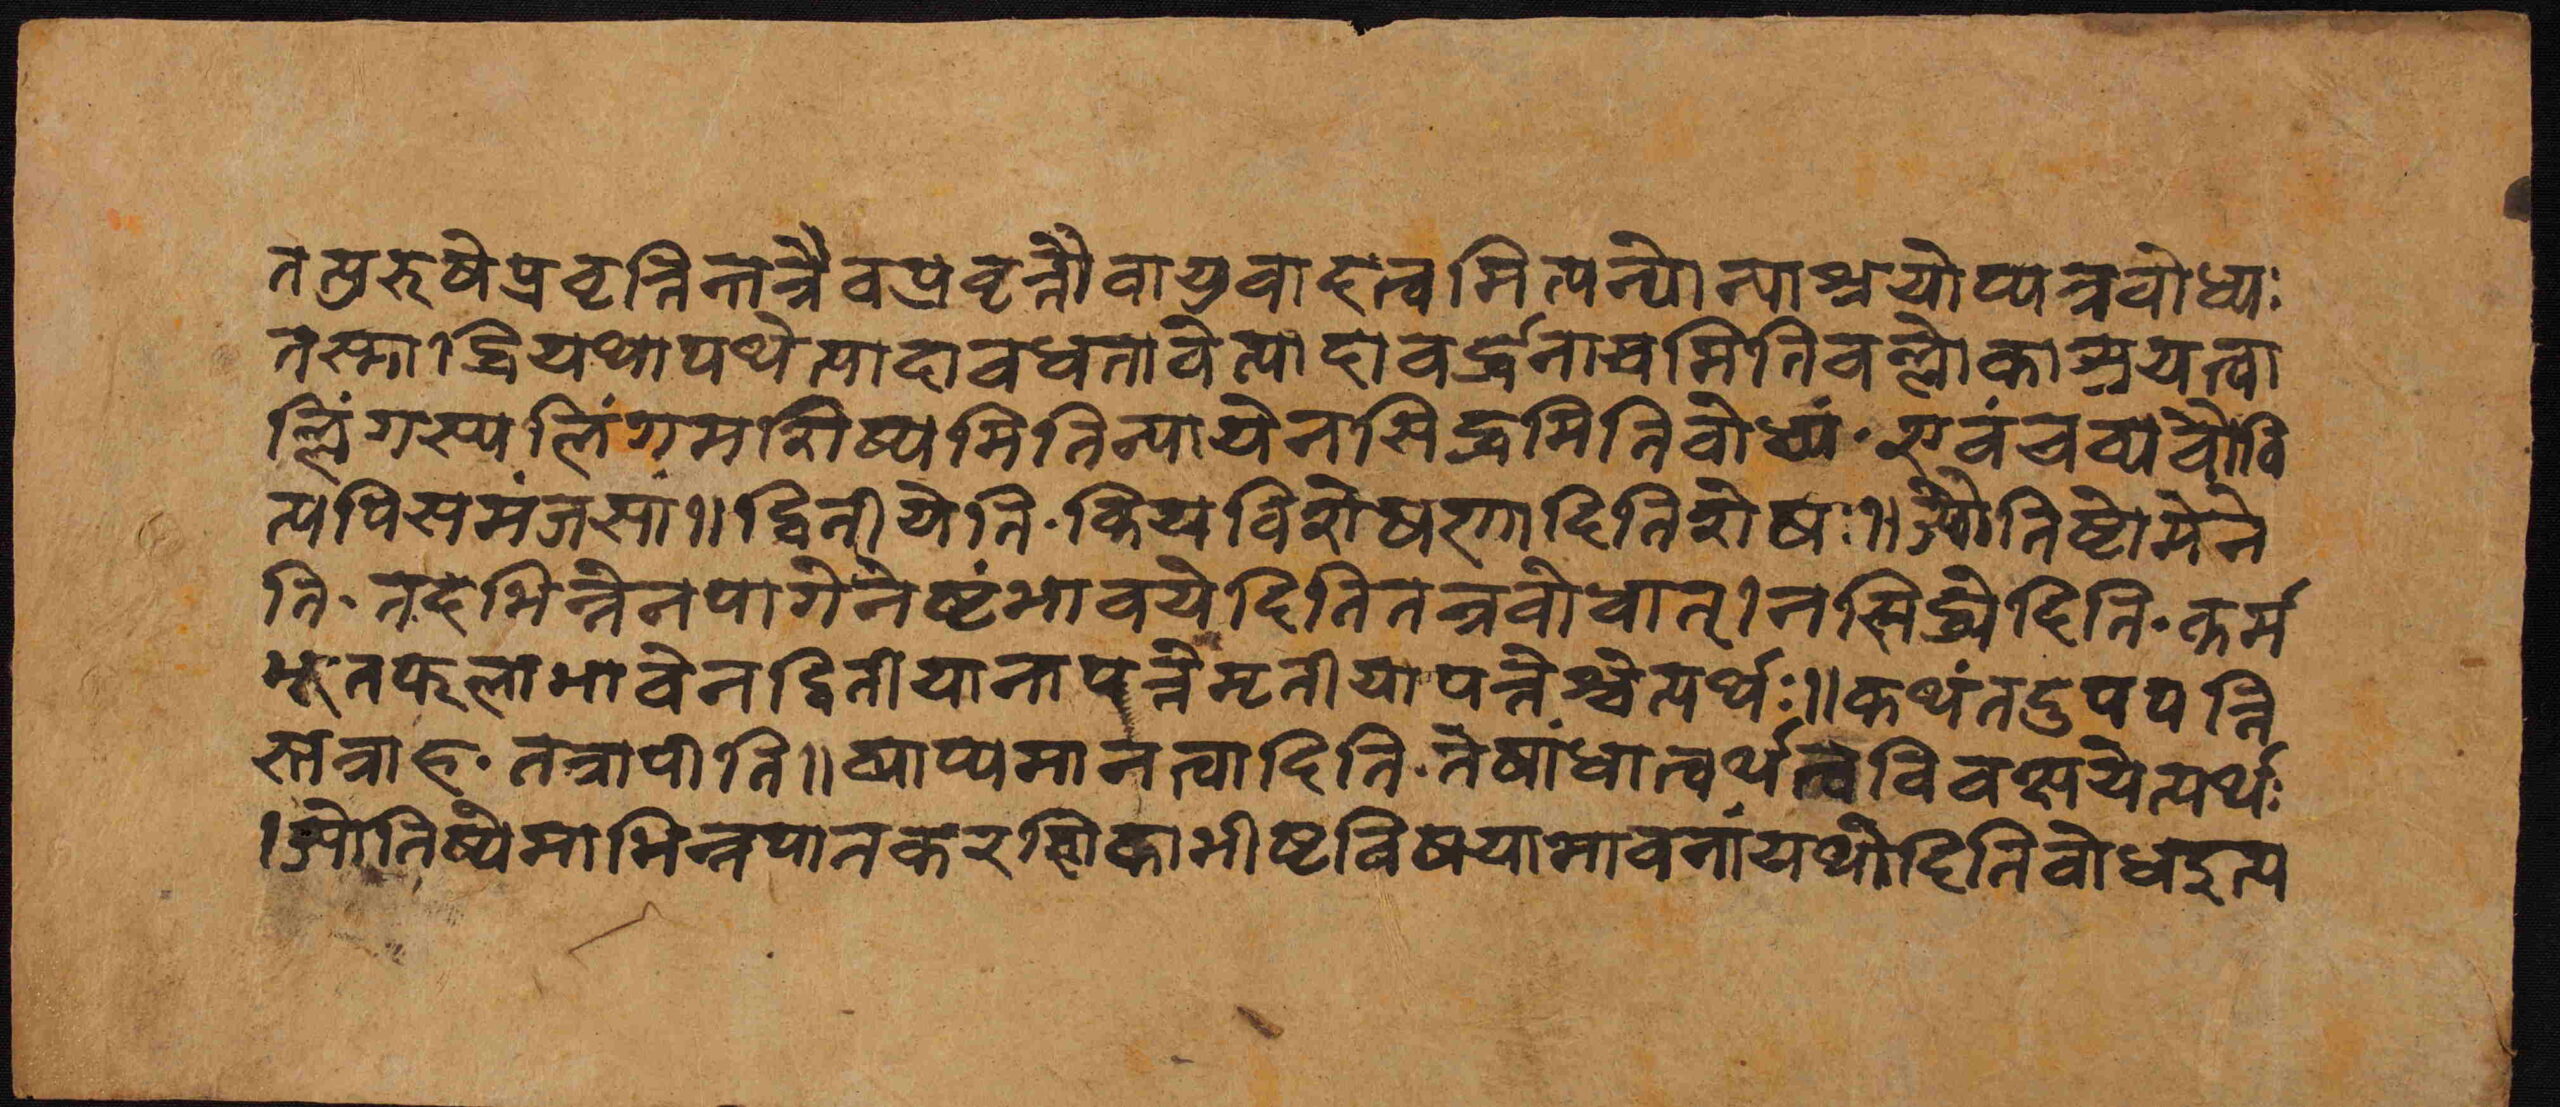 तत्पुरुषेप्रवृत्तिस्तत्रैवप्रवृत्तौवायुवादत्वमित्यन्योन्याश्रयोप्यत्रवोध्यः
तस्मा।द्वियथापथेत्यादावधतावेत्यादावर्द्धनाच्चमितिवल्लोकाश्रयत्वा
ल्लिंगस्यलिंगमशिष्यमितिन्यायेनसिद्धमितिवोध्यं॰एवंचव्यर्वावि
त्यपिसमंजसां॥द्वितीयेति॰क्रियविशेषणादितिशेषः॥ज्योतिष्टोमेने
ति॰तदभिन्नेनपागेनेष्टंभावयेदितितत्रवोधात्।नसिद्ध्येदिति॰कर्म
भूतफलाभावेनद्वितीयानापत्तेस्तृतीयापत्तेश्चेत्यर्थः॥कथंतदुपपत्ति
स्तत्राह॰तत्रापीति॥व्याप्यमानत्वादिति॰तेषांधात्वर्थत्वविवक्षयेत्यर्थः
।ज्योतिष्येमाभिन्नपानकरणिकाभीष्टविषयाभावनांयर्थादितिवोधइत्य